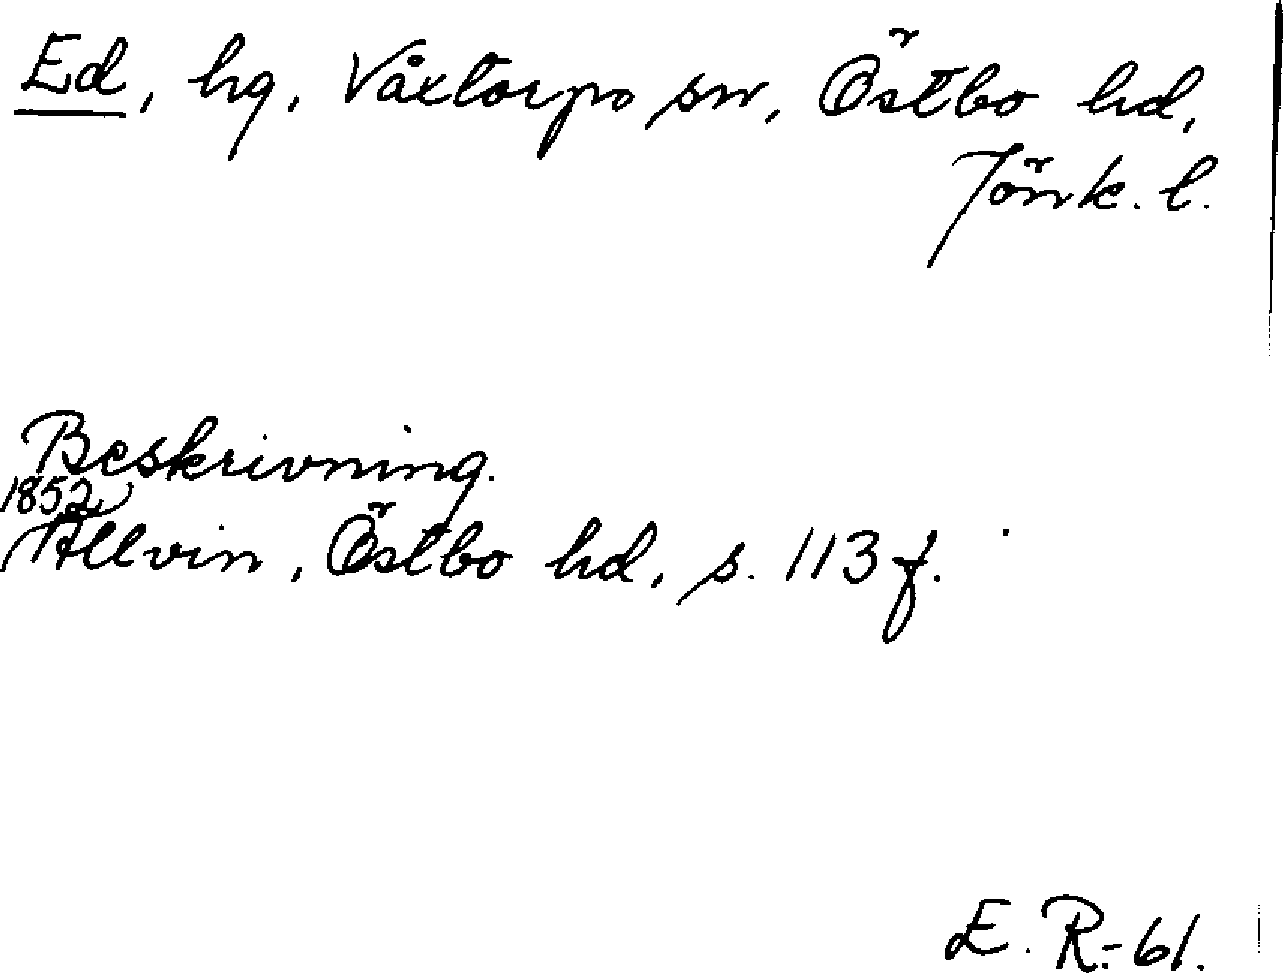 Ed, hg, Våxtorps sn, Östbo hd,
Jönk. l.
Beskrivning.
1852
Allvin, Östbo hd, s. 113 f.
E. R.-61.